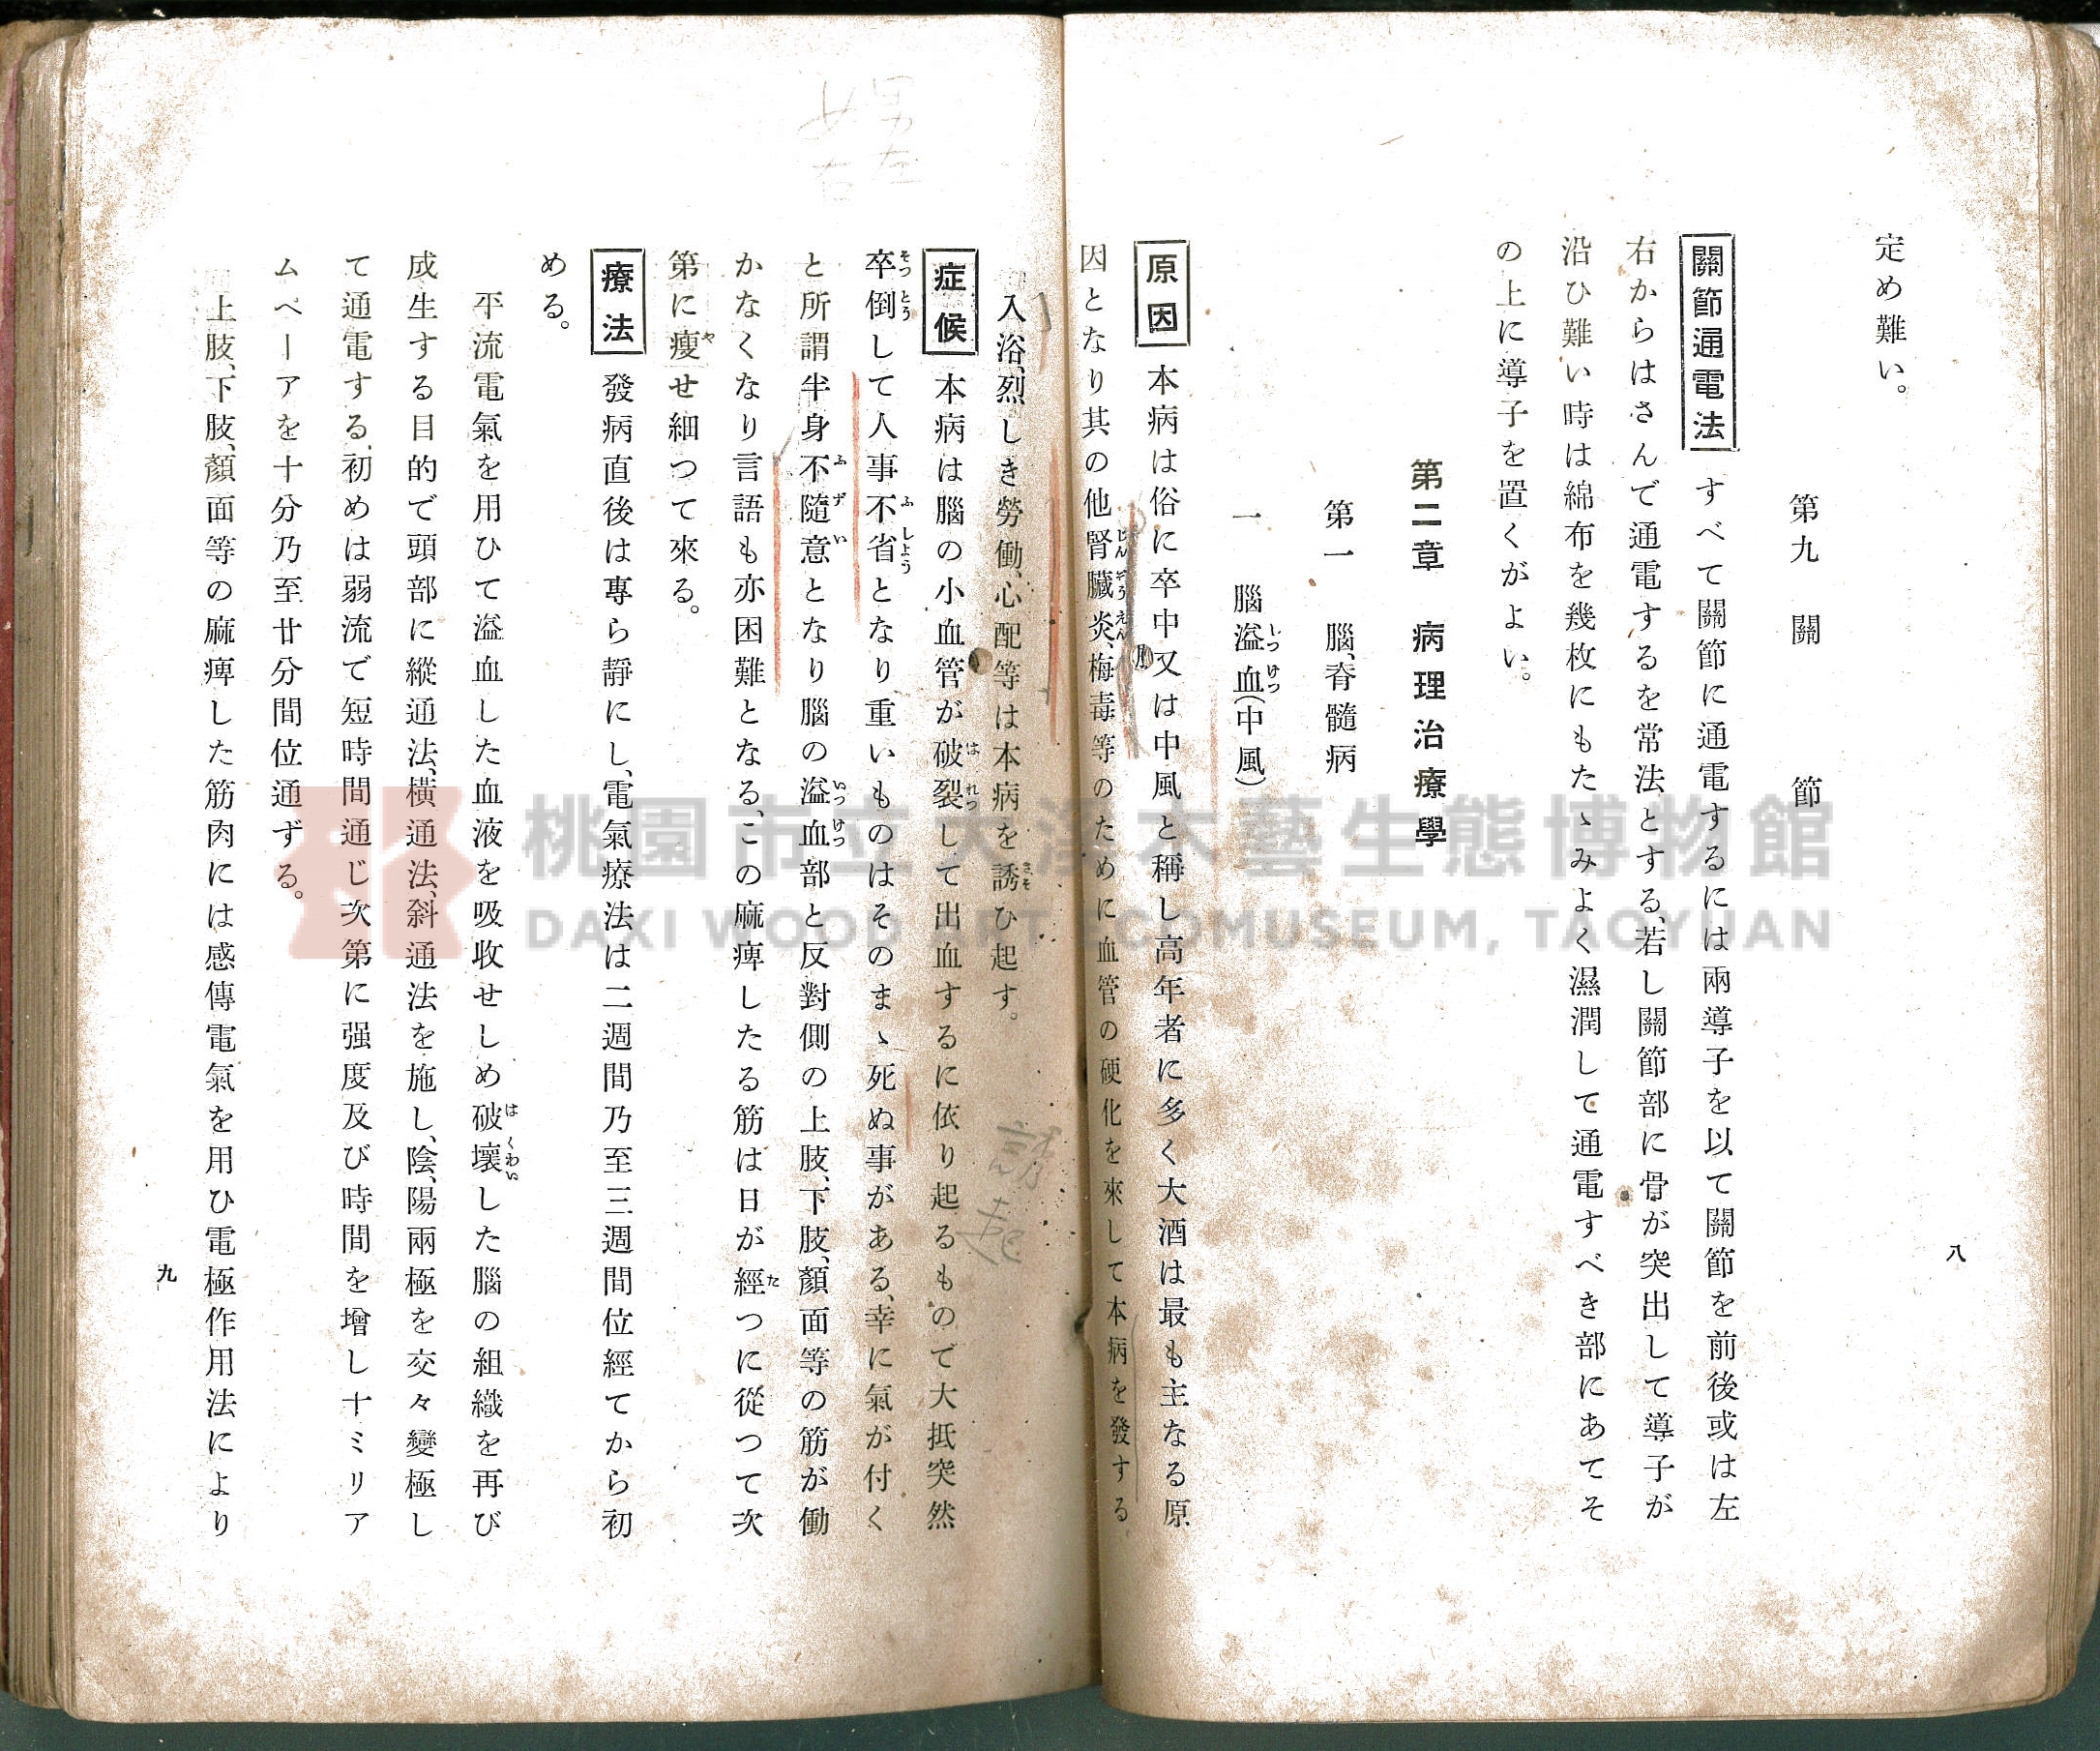 定め難い。
第九　關　節
關節通電法　すべて關節に通電するには兩導子を以て關節を前後或は左
右からはさんで通電するを常法とする、若し關節部に骨が突出して導子が
沿ひ難い時は綿布を幾枚にもたゝみよく濕潤して通電すべき部にあてそ
の上に導子を置くがよい。
第二章　病理治療學
第一　腦、脊髓病
一　腦溢血(中風)
原因　本病は俗に卒中又は中風と稱し高年者に多く大酒は最も主なる原
因となり其の他腎臟炎、梅毒等のために血管の硬化を來して本病を發する
八
入浴、烈しき勞働、心配等は本病を誘ひ起す。
症候　本病は腦の小血管が破裂して出血するに依り起るもので大抵突然
卒倒して人事不省となり重いものはそのまゝ死ぬ事がある、幸に氣が付く
と所謂半身不隨意となり腦の溢血部と反對側の上肢、下肢、顏面等の筋が働
かなくなり言語も亦困難となる、この麻痺したる筋は日が經つに從つて次
第に瘦せ細つて來る。
療法　發病直後は專ら靜にし、電氣療法は二週間乃至三週間位經てから初
める。
平流電氣を用ひて溢血した血液を吸收せしめ破壞した腦の組織を再び
成生する目的で頭部に縱通法、橫通法、斜通法を施し、陰、陽兩極を交々變極し
て通電する、初めは弱流で短時間通じ次第に强度及び時間を增し十ミリア
ムペーアを十分乃至廿分間位通ずる。
上肢、下肢、顏面等の麻痺した筋肉には感傳電氣を用ひ電極作用法により
九
桃園市立大溪木藝生態博物館
DAXI WOOD ART ECOMUSEUM, TAOYUAN